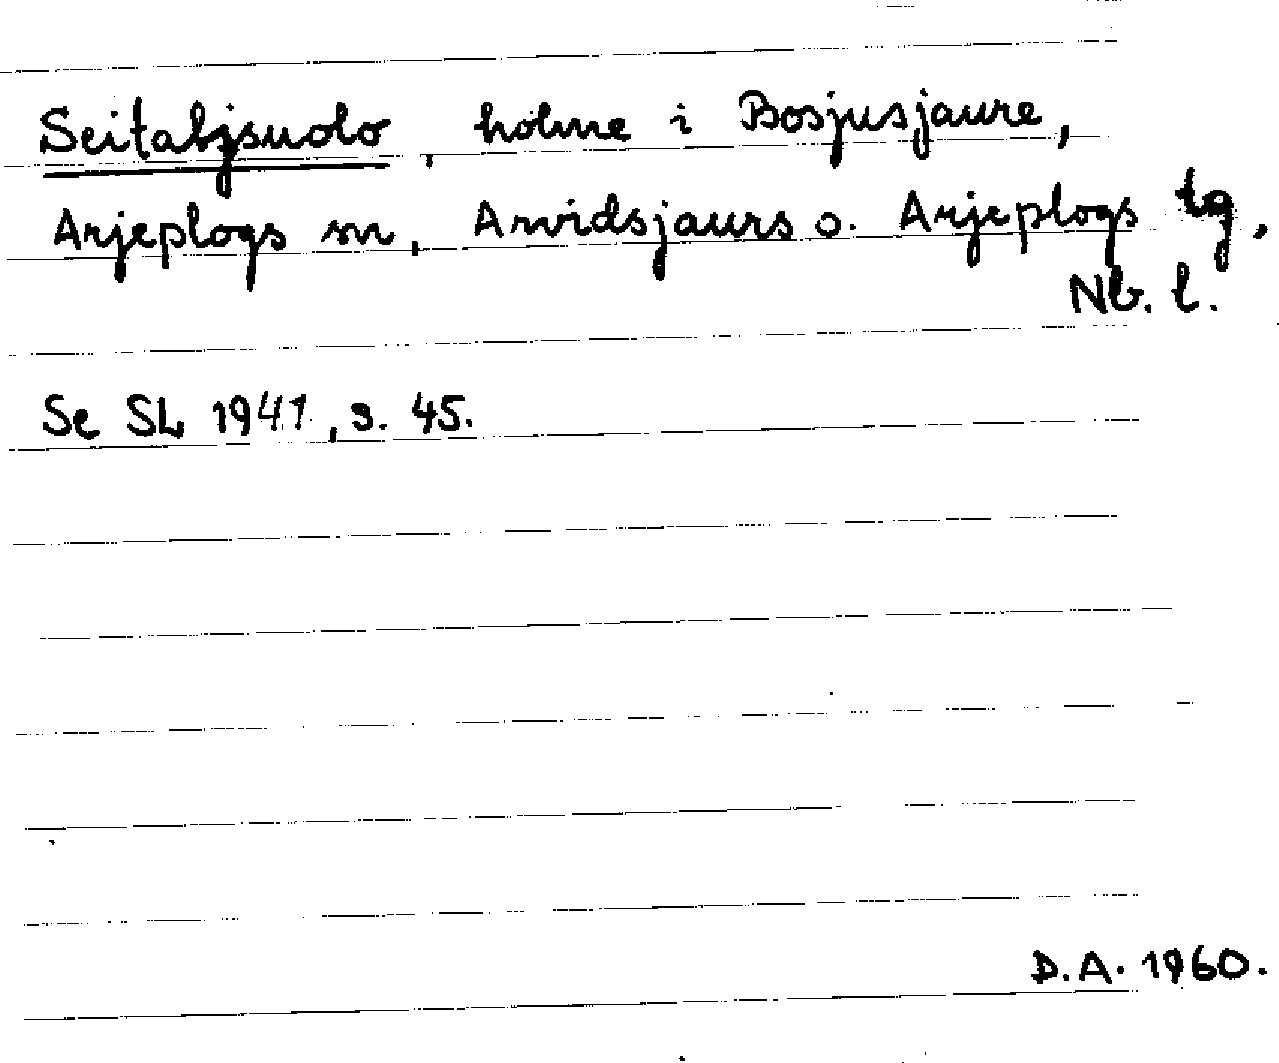 Seitabjsuolo, holme i Bosjusjaure,
Arjeplogs sn, Arvidsjaurs o. Arjeplogs tg,
Nb. l.
Se SL 1941, s. 45.
D.A. 1960.